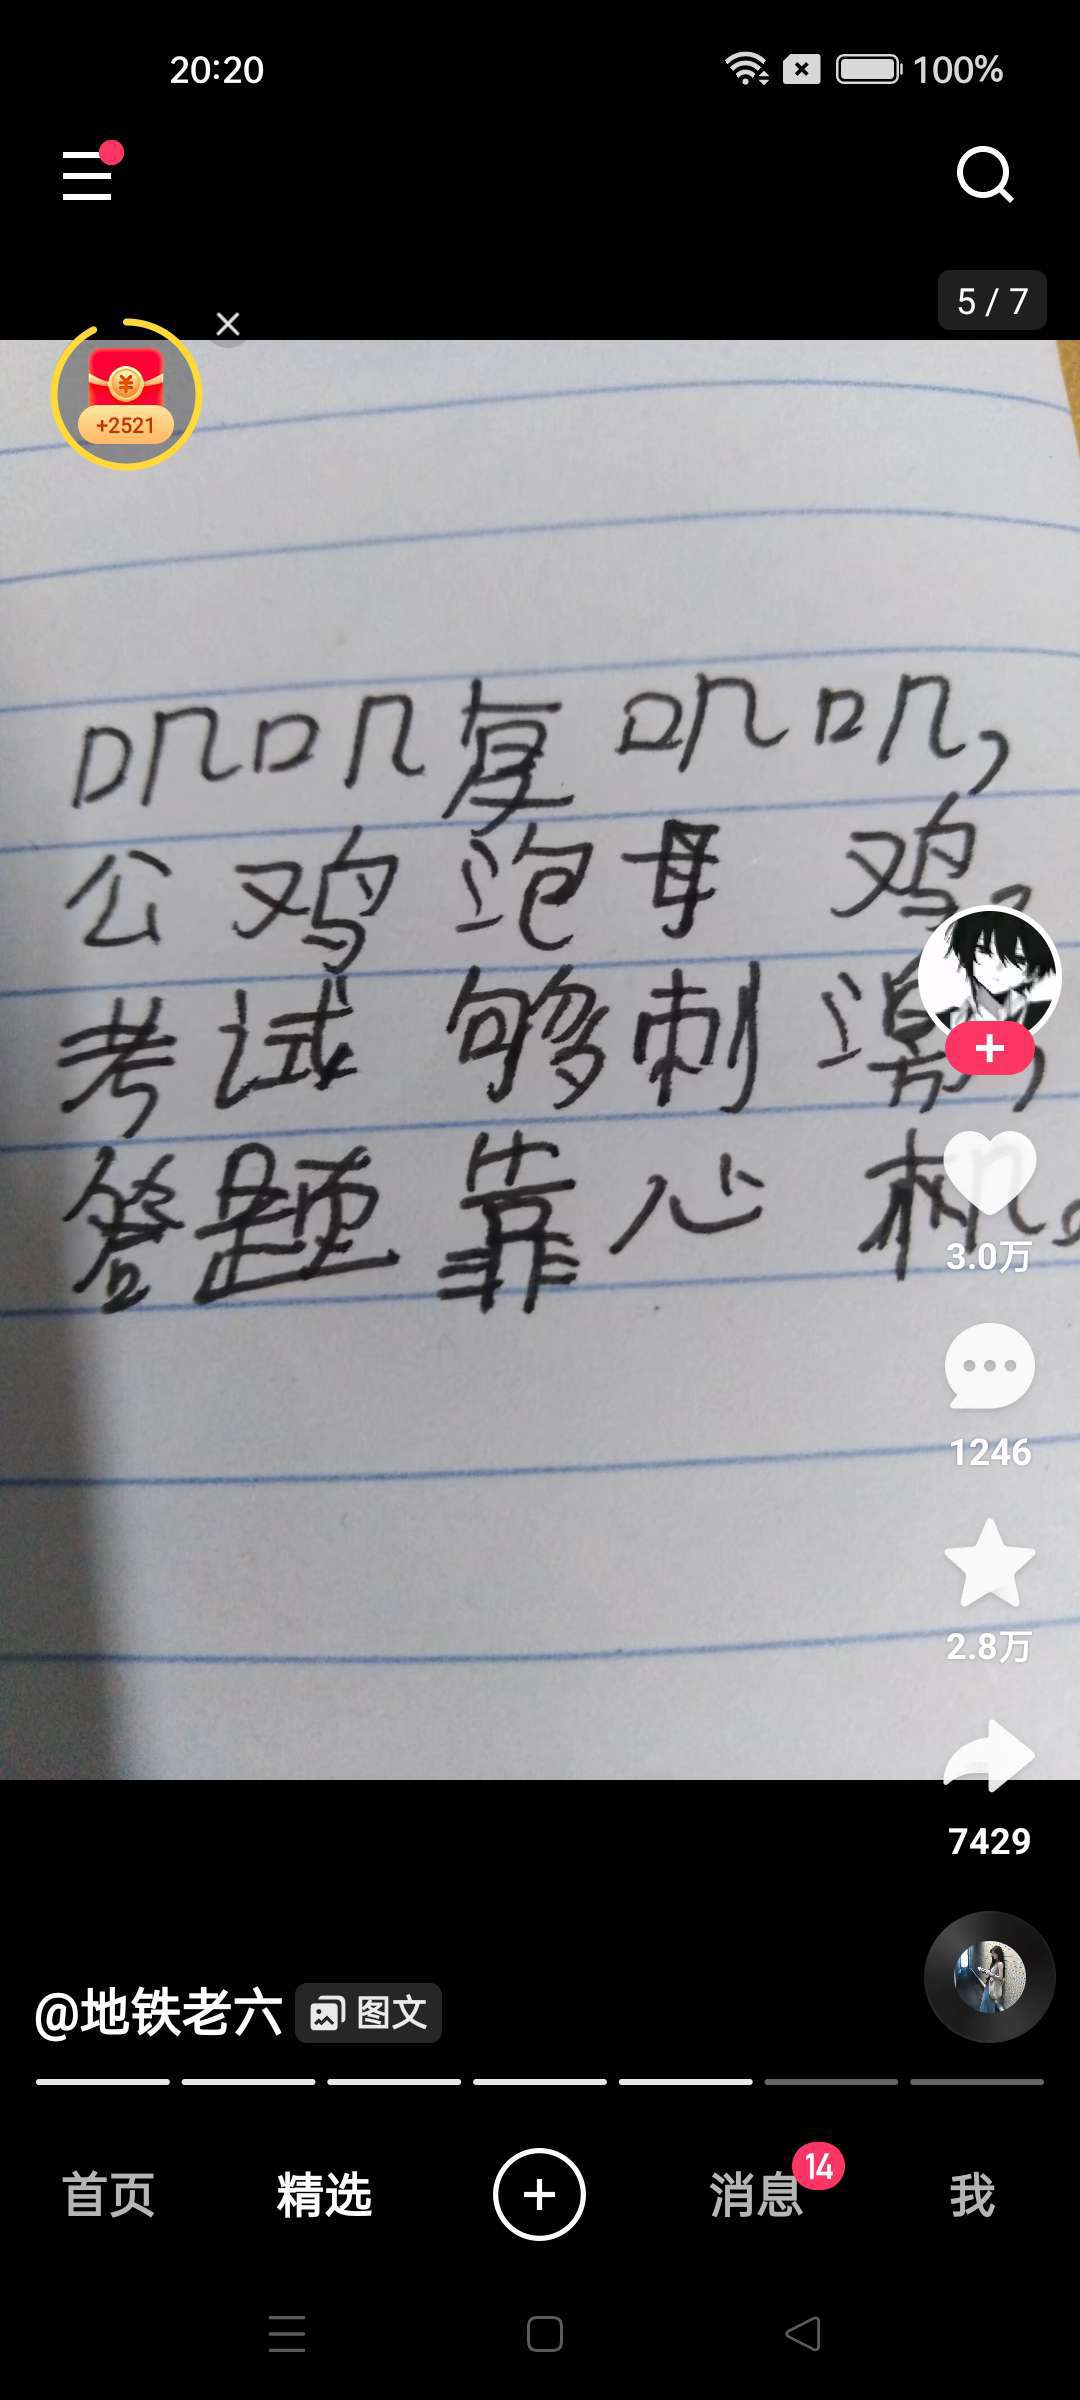 20:20
100%
5 / 7
+2521
叽叽复叽叽，
公鸡泡母鸡。
考试够刺激，
答题靠心机。
3.0万
1246
2.8万
7429
@地铁老六 图文
首页 精选 消息 14 我